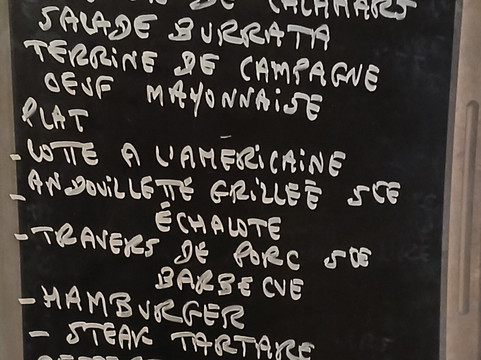 DE CALAMARS
SALADE BURRATA
TERRINE DE CAMPAGNE
OEUF MAYONNAISE
PLAT
- LOTTE A L'AMERICAINE
- ANDOUILLETTE GRILLEE SCE
ÉCHALOTE
- TRAVERS DE PORC SCE
BARBECUE
- HAMBURGER
- STEAK TARTARE